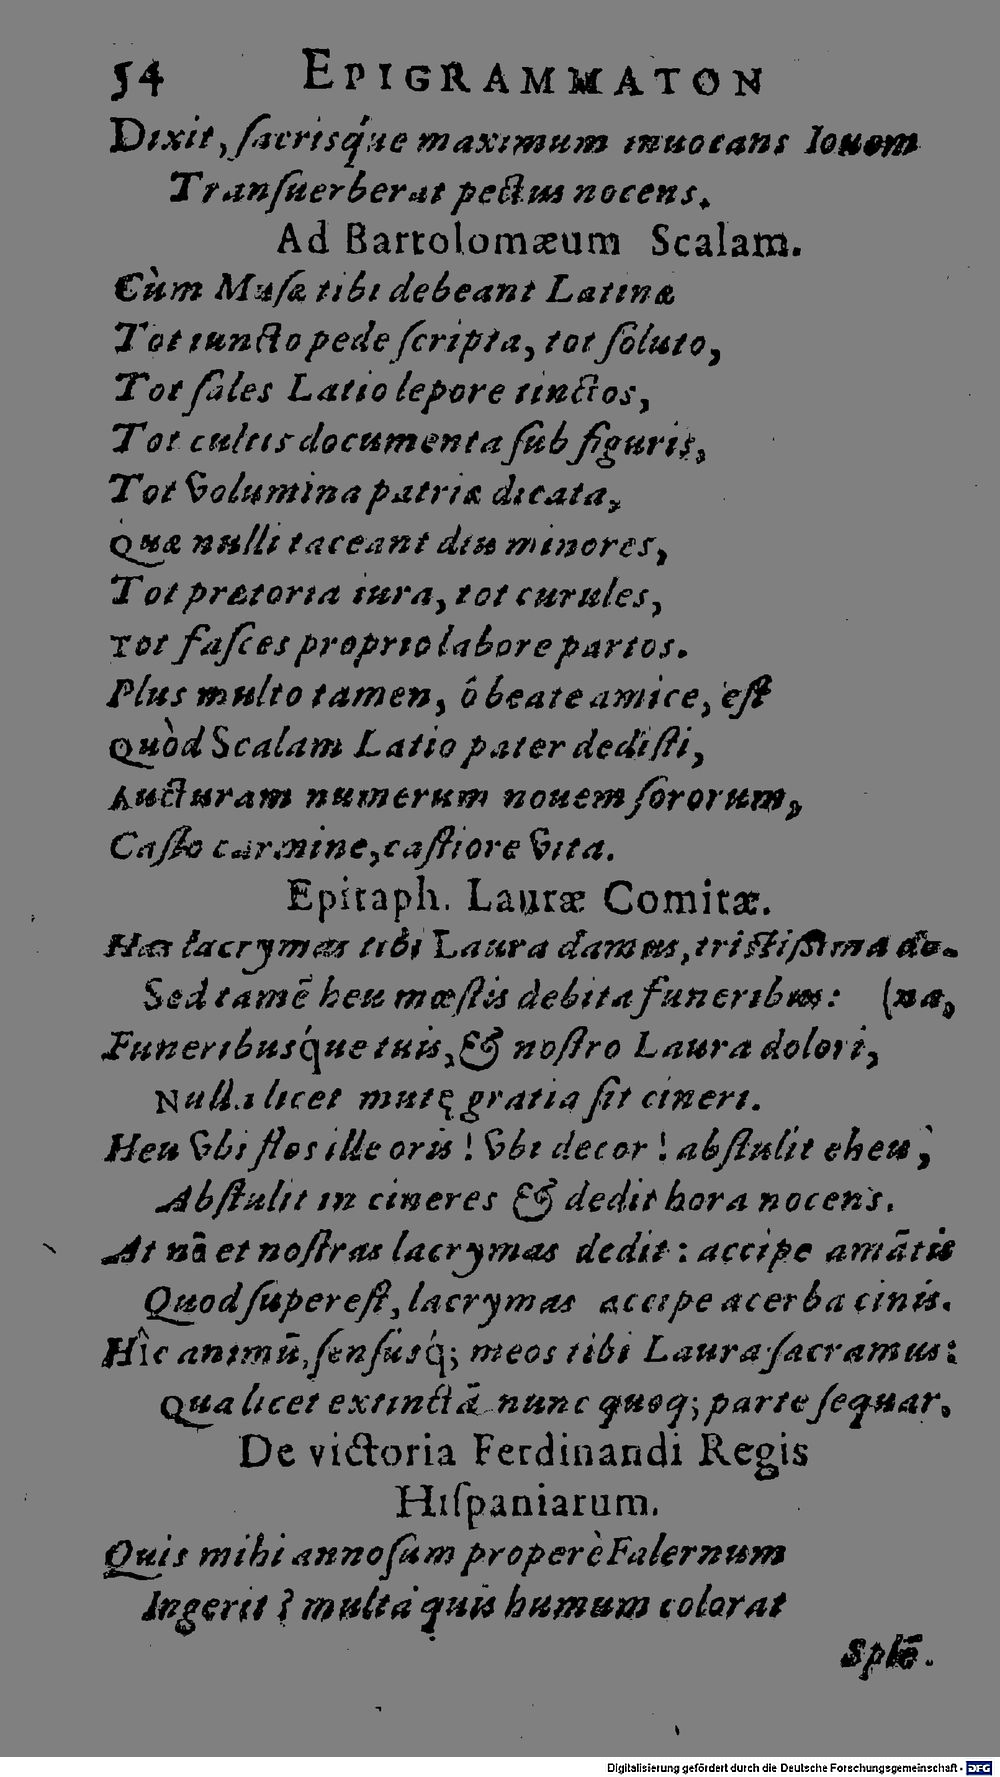 54 EPIGRAMMATON
Dixit, ſacrisq́ue maximum inuocans Iouem
Tranſuerberat pectus nocens.
Ad Bartolomæum Scalam.
Cùm Muſæ tibi debeant Latinæ
Tot iuncto pede ſcripta, tot ſoluto,
Tot ſales Latio lepore tinctos,
Tot cultis documenta ſub figuris,
Tot volumina patriæ dicata,
Quæ nulli taceant diu minores,
Tot prætoria iura, tot curules,
Tot faſces proprio labore partos.
Plus multo tamen, ô beate amice, eſt
Quòd Scalam Latio pater dediſti,
Aucturam numerum nouem ſororum,
Caſto carmine, caſtiore vita.
Epitaph. Lauræ Comitæ.
Has lacrymas tibi Laura damus, triſtiſſima do-
Sed tamẽ heu mœſtis debita funeribus: (na,
Funeribusq́ue tuis, & noſtro Laura dolori,
Nulla licet mutę gratia ſit cineri.
Heu vbi flos ille oris! vbi decor! abſtulit eheu,
Abſtulit in cineres & dedit hora nocens.
At nõ et noſtras lacrymas dedit: accipe amãtis
Quod ſupereſt, lacrymas accipe acerba cinis.
Hîc animũ, ſenſusq́; meos tibi Laura ſacramus:
Qua licet extinctã nunc quoq; parte ſequar.
De victoria Ferdinandi Regis
Hiſpaniarum.
Quis mihi annoſum properè Falernum
Ingerit? multa quis humum colorat
Splẽ.
Digitalisierung gefördert durch die Deutsche Forschungsgemeinschaft - DFG